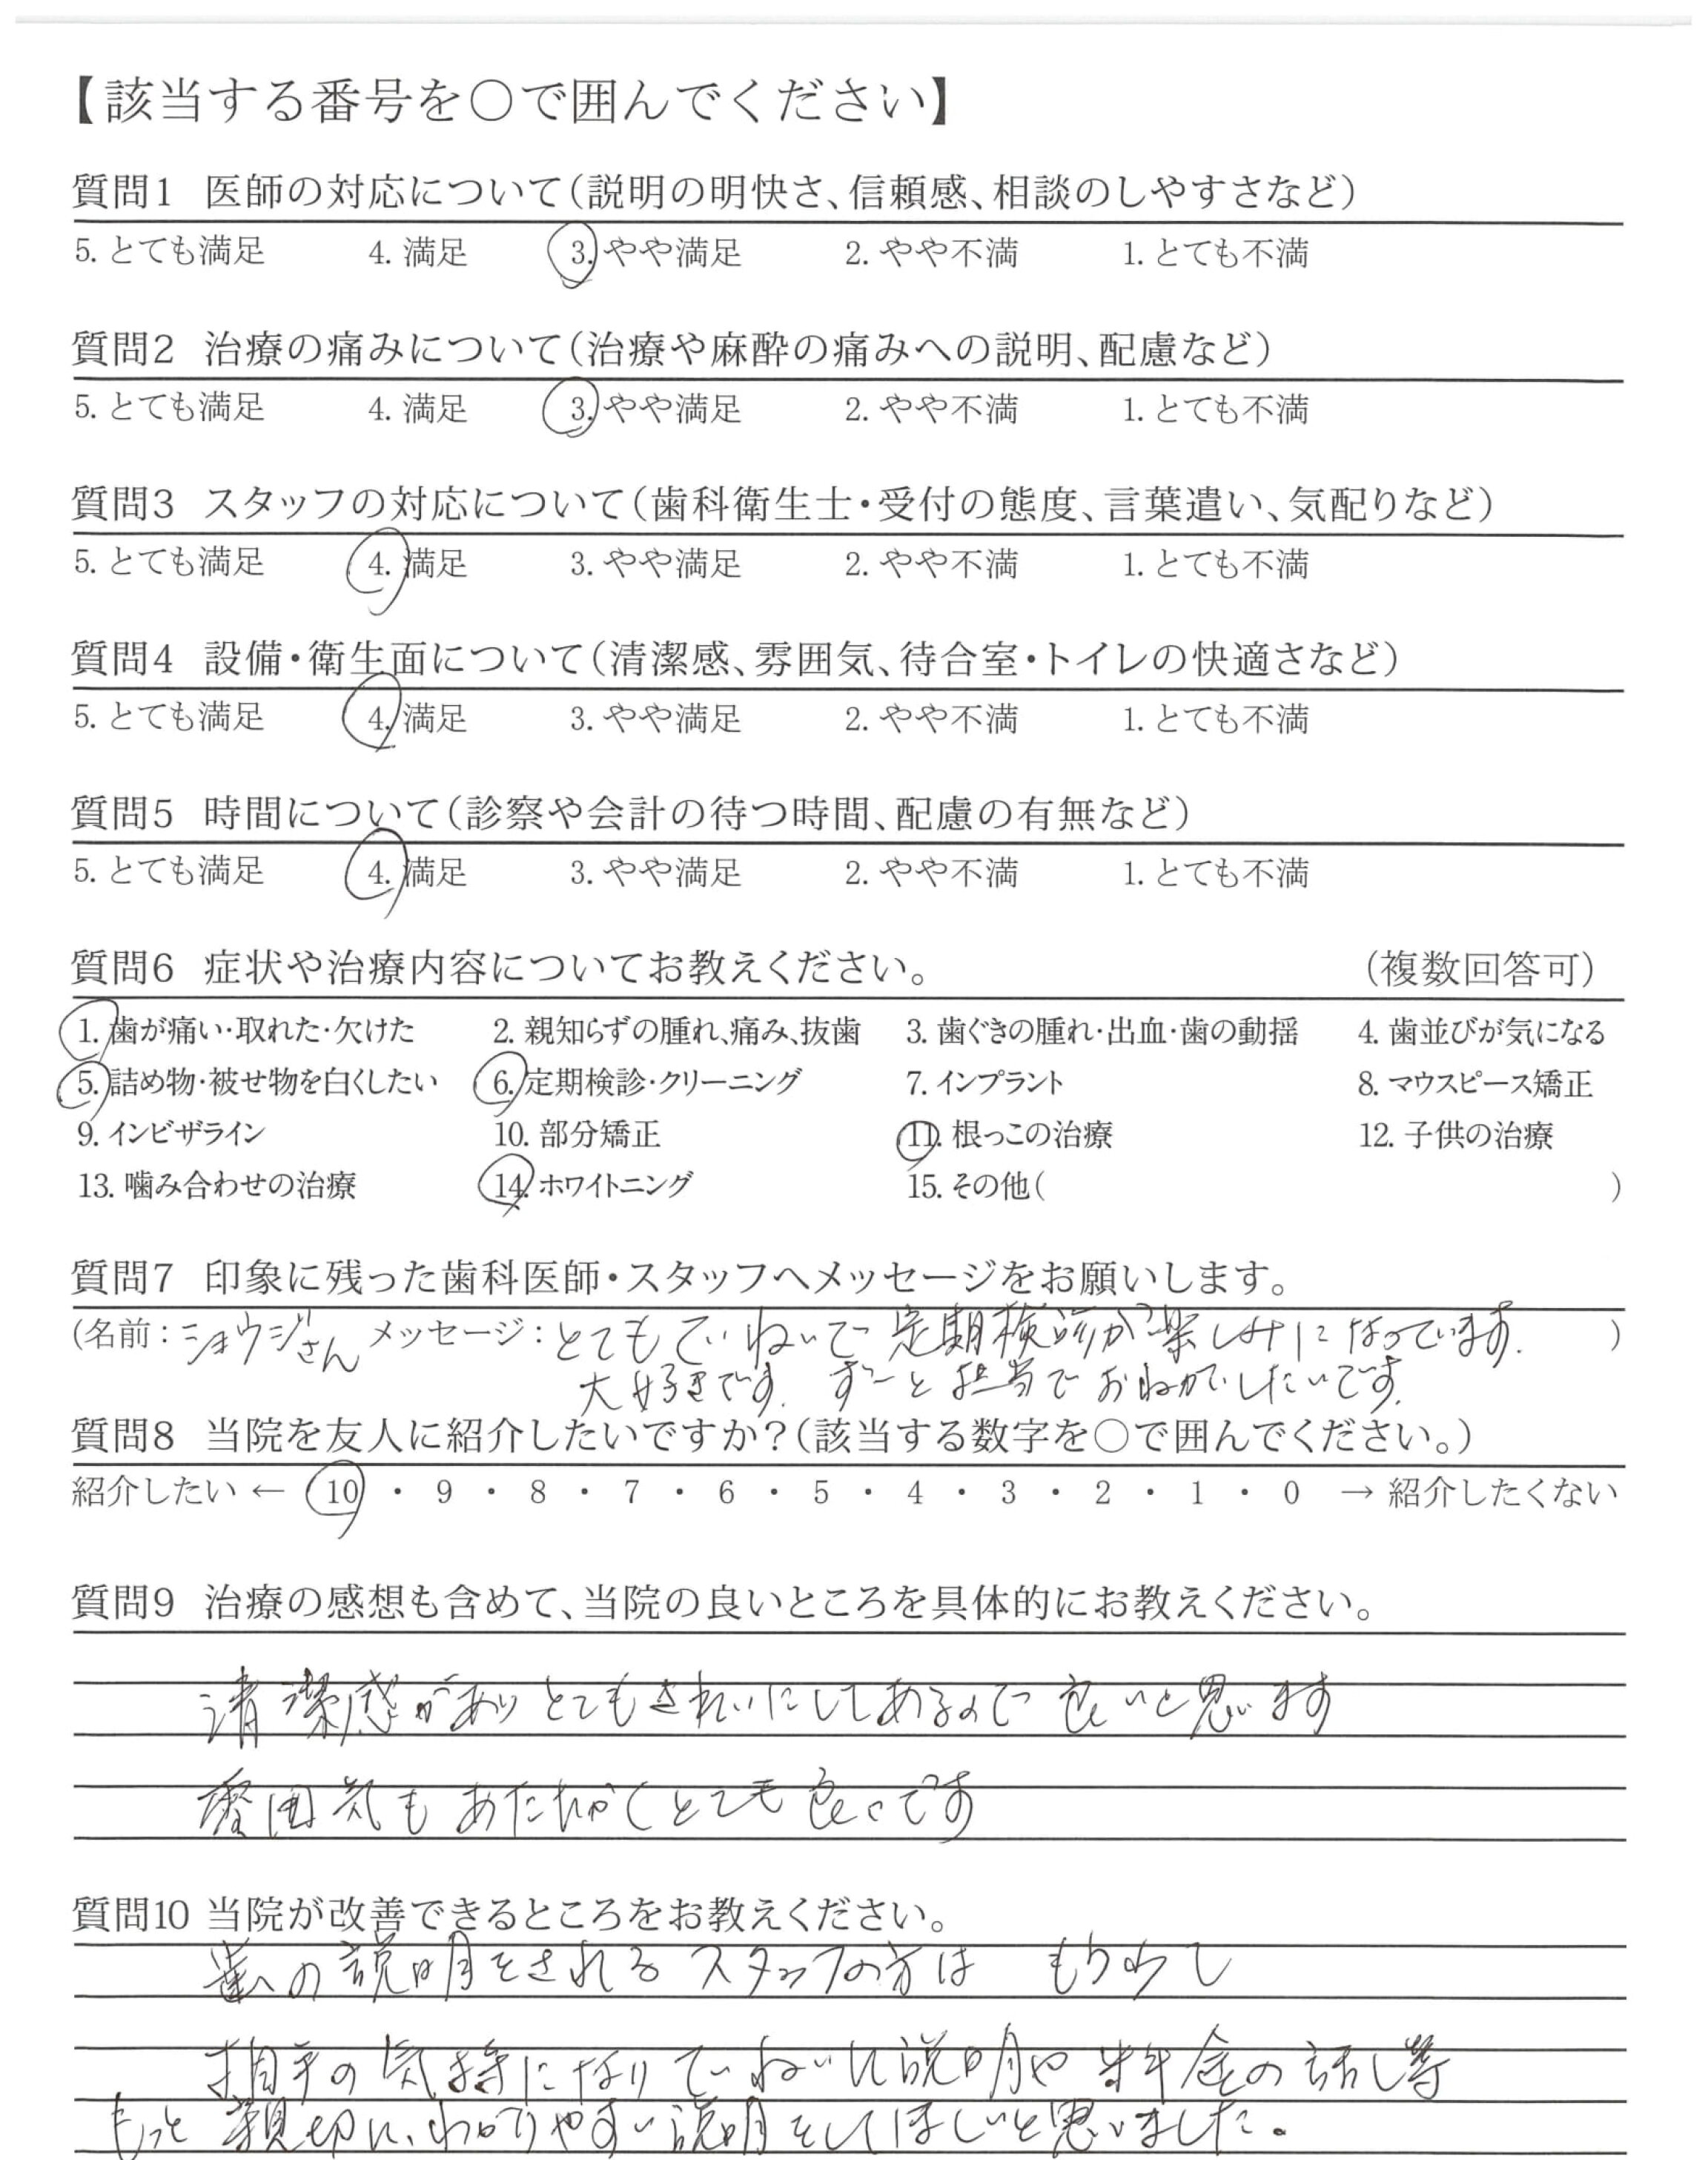 【該当する番号を○で囲んでください】
質問1 医師の対応について(説明の明快さ、信頼感、相談のしやすさなど)
5. とても満足 4. 満足 3. やや満足 2. やや不満 1. とても不満
質問2 治療の痛みについて(治療や麻酔の痛みへの説明、配慮など)
5. とても満足 4. 満足 3. やや満足 2. やや不満 1. とても不満
質問3 スタッフの対応について(歯科衛生士・受付の態度、言葉遣い、気配りなど)
5. とても満足 4. 満足 3. やや満足 2. やや不満 1. とても不満
質問4 設備・衛生面について(清潔感、雰囲気、待合室・トイレの快適さなど)
5. とても満足 4. 満足 3. やや満足 2. やや不満 1. とても不満
質問5 時間について(診察や会計の待つ時間、配慮の有無など)
5. とても満足 4. 満足 3. やや満足 2. やや不満 1. とても不満
質問6 症状や治療内容についてお教えください。 (複数回答可)
1. 歯が痛い・取れた・欠けた 2. 親知らずの腫れ、痛み、抜歯 3. 歯ぐきの腫れ・出血・歯の動揺 4. 歯並びが気になる
5. 詰め物・被せ物を白くしたい 6. 定期検診・クリーニング 7. インプラント 8. マウスピース矯正
9. インビザライン 10. 部分矯正 11. 根っこの治療 12. 子供の治療
13. 噛み合わせの治療 14. ホワイトニング 15. その他( )
質問7 印象に残った歯科医師・スタッフへメッセージをお願いします。
(名前：ショウジさん メッセージ：とてもていねいで 定期検診が楽しみになっています. )
大好きです. ずーと担当でおねがいしたいです.
質問8 当院を友人に紹介したいですか？(該当する数字を○で囲んでください。)
紹介したい ← 10 ・ 9 ・ 8 ・ 7 ・ 6 ・ 5 ・ 4 ・ 3 ・ 2 ・ 1 ・ 0 → 紹介したくない
質問9 治療の感想も含めて、当院の良いところを具体的にお教えください。
清潔感があり とてもきれいにしてあるので 良いと思います
雰囲気も あたたかくとても 良いです
質問10 当院が改善できるところをお教えください。
歯の説明をされる スタッフの方は もう少し
相手の気持になり ていねいに説明や 料金の話し等
もっと 親切に、わかりやすい説明をしてほしいと思いました。